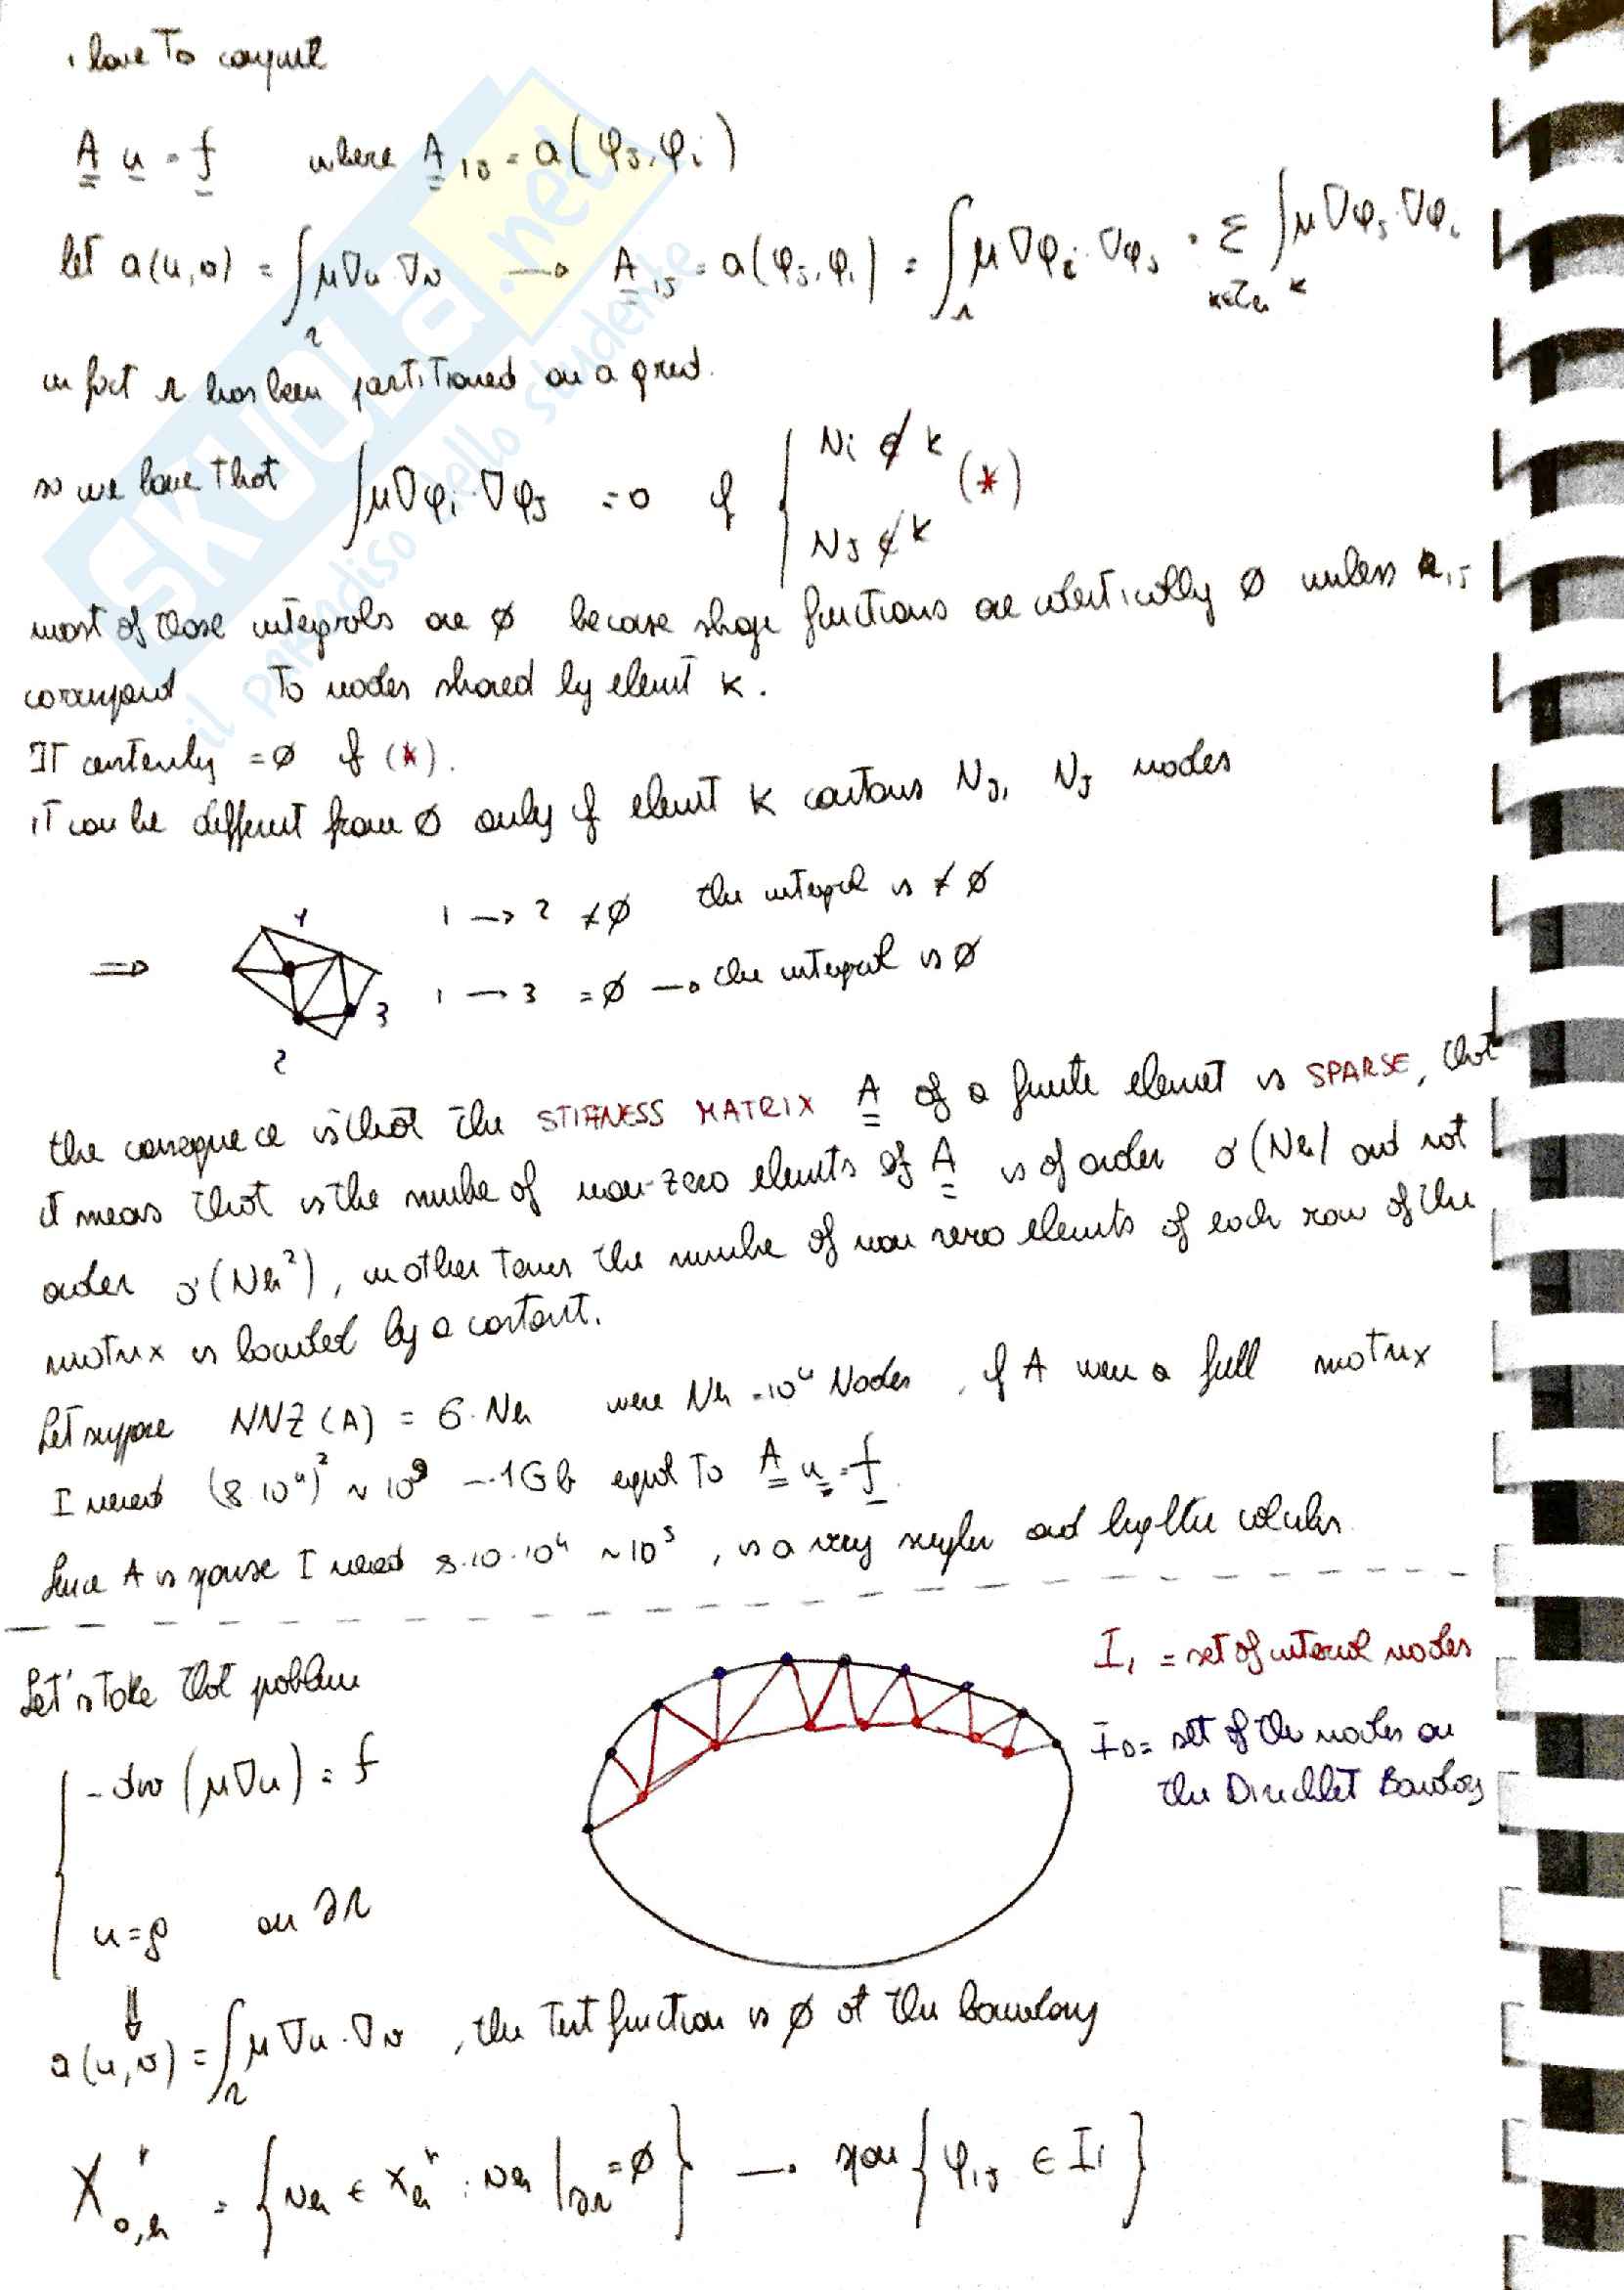 I have to compute
A u = f where A_ij = a(φ_j, φ_i)
let a(u,v) = ∫_Ω μ∇u·∇v → A_ij = a(φ_j, φ_i) = ∫_Ω μ∇φ_i·∇φ_j = Σ_{K∈T_h} ∫_K μ∇φ_j·∇φ_i
in fact Ω has been partitioned on a grid.
so we have that ∫μ∇φ_i·∇φ_j = 0 if { N_i ∉ K N_J ∉ K (*)
most of those integrals are ∅ because shape functions are identically ∅ unless
correspond to nodes shared by element K.
IT certenly = ∅ if (*).
it can be different from ∅ only if element K contains N_J, N_J nodes
⇒ 1 2 3
1 → 2 ≠ ∅ the integral is ≠ ∅
1 → 3 = ∅ → the integral is ∅
the consequece is that the STIFNESS MATRIX A of a finite element is SPARSE, that
it means that is the number of non-zero elements of A is of order o(Nh) and not
order o(Nh²), in other terms the number of non zero elements of each row of the
matrix is bounded by a constant.
Let suppose NNZ(A) = 6·Nh were Nh = 10⁴ Nodes, if A were a full matrix
I need (8·10⁴)² ~ 10⁹ → 1Gb equal to A u = f.
Since A is sparse I need 8·10·10⁴ ~ 10⁵, is a very simpler and lighter calculus.
Let's take that problem
{ -div(μ∇u) = f
u = g on ∂Ω
I_1 = set of internal nodes
I_D = set of the nodes on
the Dirichlet Boundary
⇓
a(u,v) = ∫_Ω μ∇u·∇v, the test function is ∅ at the boundary
X^r_{0,h} = { v_h ∈ X_h^r : v_h|_∂Ω = ∅ } → span { φ_i,J ∈ I_1 }
SKUOLA.net
il paradiso dello studente